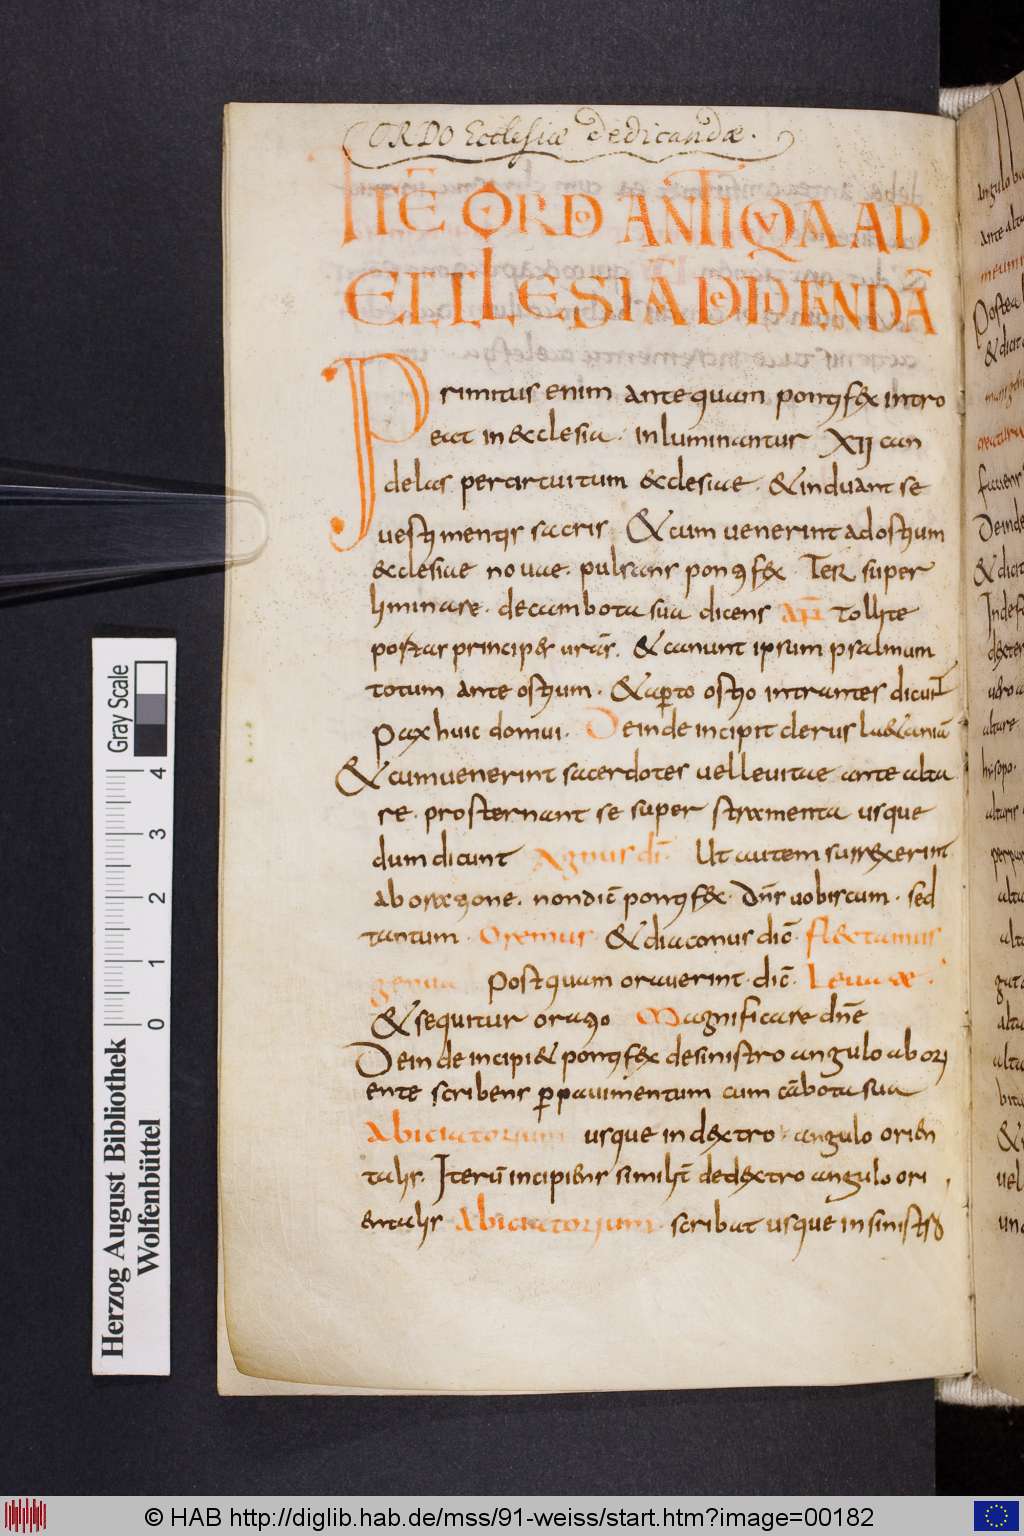 ORDO Ecclesiæ dedicandæ.
ITĒ ORDO ANTIQVA AD
ECCLESIĀ DEDICANDĀ
Primitus enim antequam pontifex intro
eat in ecclesia. inluminantur XII can
delas per circuitum ecclesiae. & induant se
vestimentis sacris & cum venerint ad ostium
ecclesiae novae. pulsans pontifex. Ter super
liminare. de cambota sua dicens Tollite
portas principes urās. & canunt ipsum psalmum
totum ante ostium. & apto ostio intrantes dicunt
Pax huic domui. Deinde incipit clerus laetaniā
& cum venerint sacerdotes vel levitae ante alta
re. prosternant se super stramenta usque
dum dicunt Agnus dī. Ut autem surrexerint
ab oratione. non dic̄ pontifex. Dn̄s vobiscum. sed
tantum. Oremus. & diaconus dic̄. flectamus
genua Postquam oraverint. dic̄. Levate.
& sequitur oratio Magnificare dn̄e
Deinde incipi& pontifex de sinistro angulo ab ori
ente scribens p pavimentum cum cābota sua
Abiciatorium usque in dextro angulo orien
talis. Iterū incipiens similit̄ de dextro angulo ori
entalis Abiciatorium. scribat usque in sinistro
Gray Scale
4
3
2
1
0
Herzog August Bibliothek
Wolfenbüttel
© HAB http://diglib.hab.de/mss/91-weiss/start.htm?image=00182